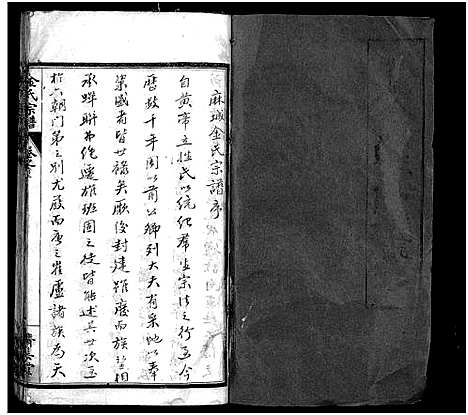 麻城金氏宗譜序
自黃帝立姓氏以統紀羣生宗法之行至今
曆數千年周以前公卿列大夫有采地以奉
祭盛者皆世祿矣厥後封建雖廢而族望相
承蟬聯弗絶遷雄班固之徒皆能述其世次至
於六朝門第之別尤嚴而唐之崔盧諸族為天
金氏宗譜